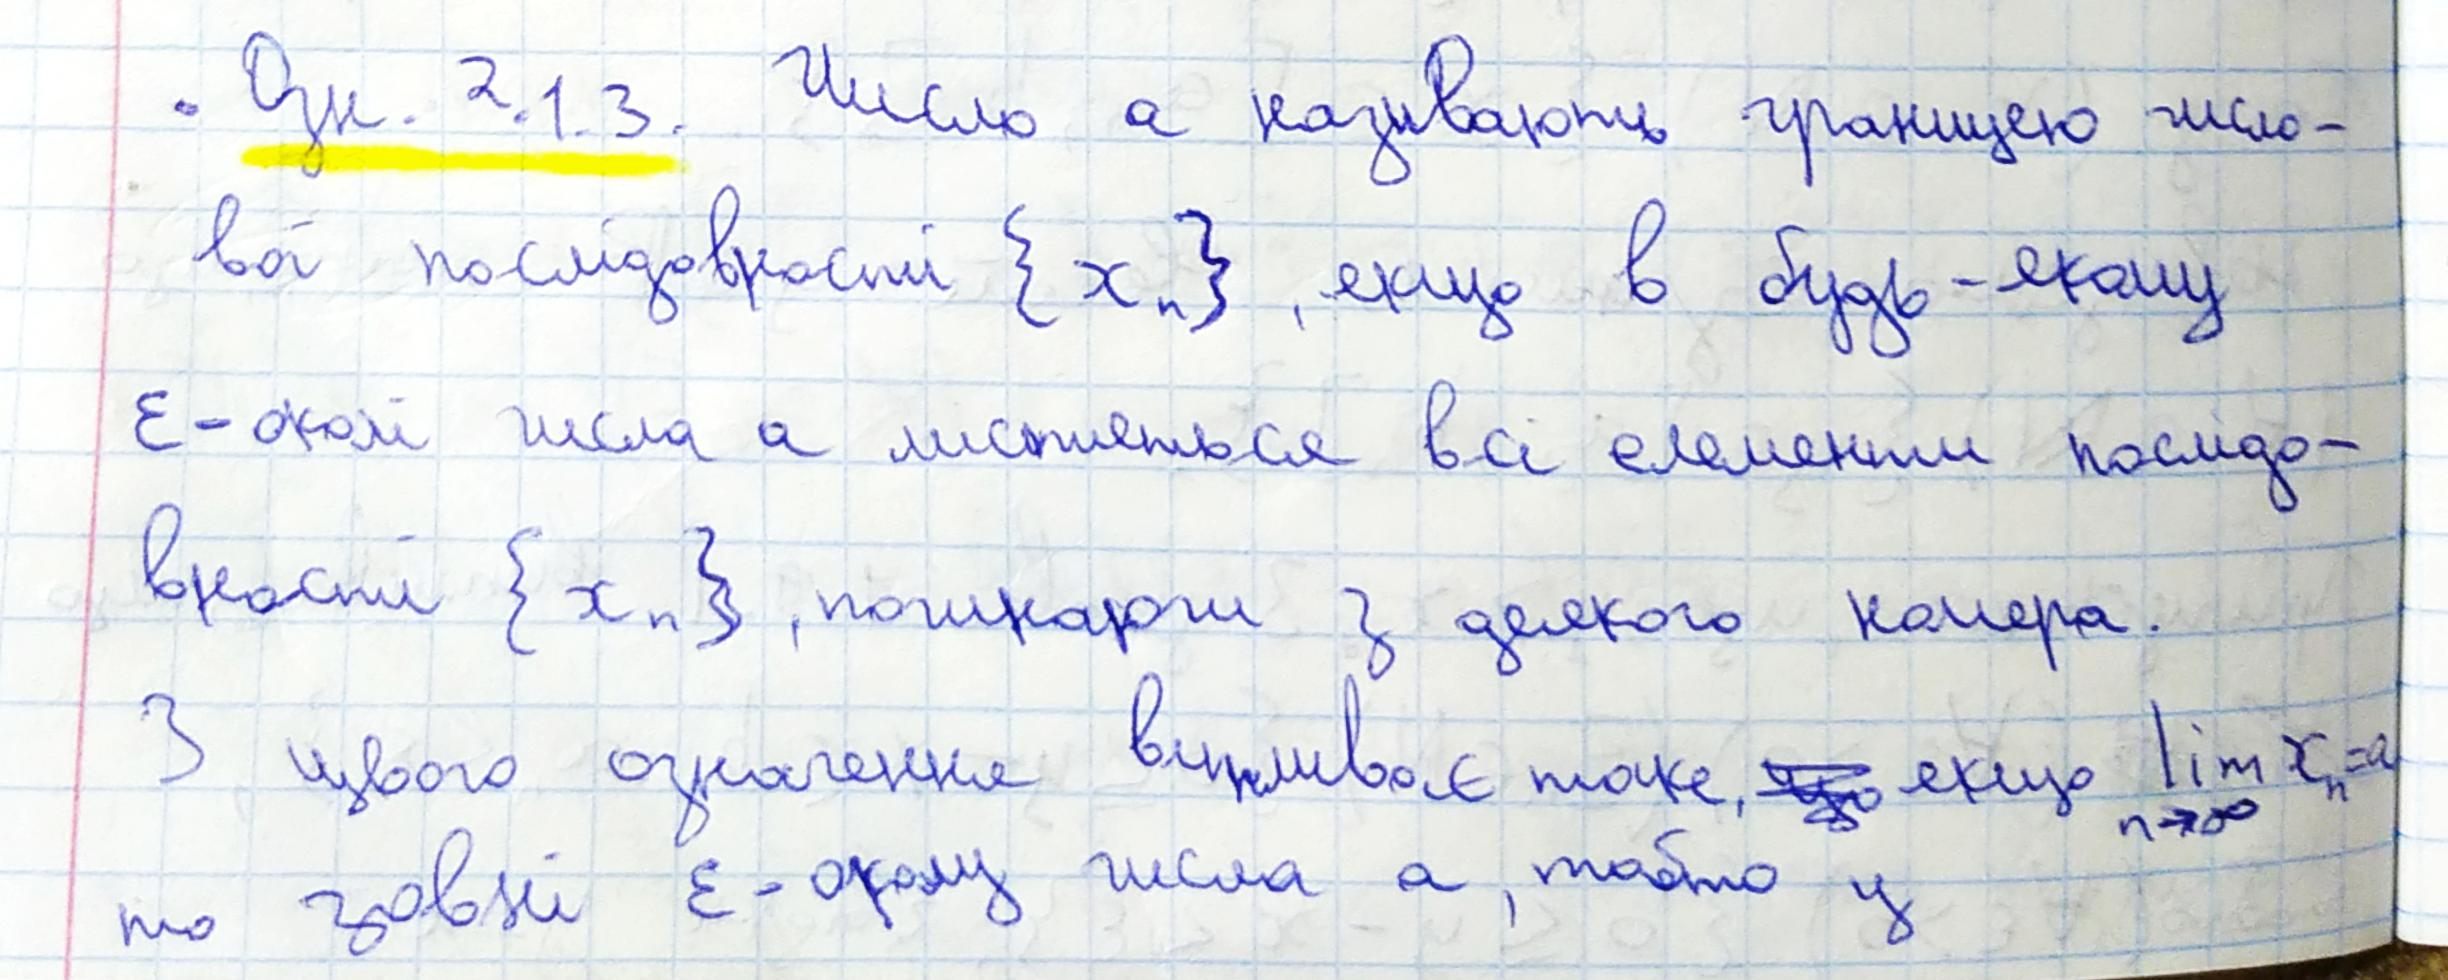 · Озн. 2.1.3. Число a називають границею число-
вої послідовності {xₙ}, якщо в будь-якому
ε-околі числа a містяться всі елементи послідо-
вності {xₙ}, починаючи з деякого номера.
З цього означення випливає таке, якщо lim xₙ=a
n→∞
то зовні ε-околу числа a, тобто у